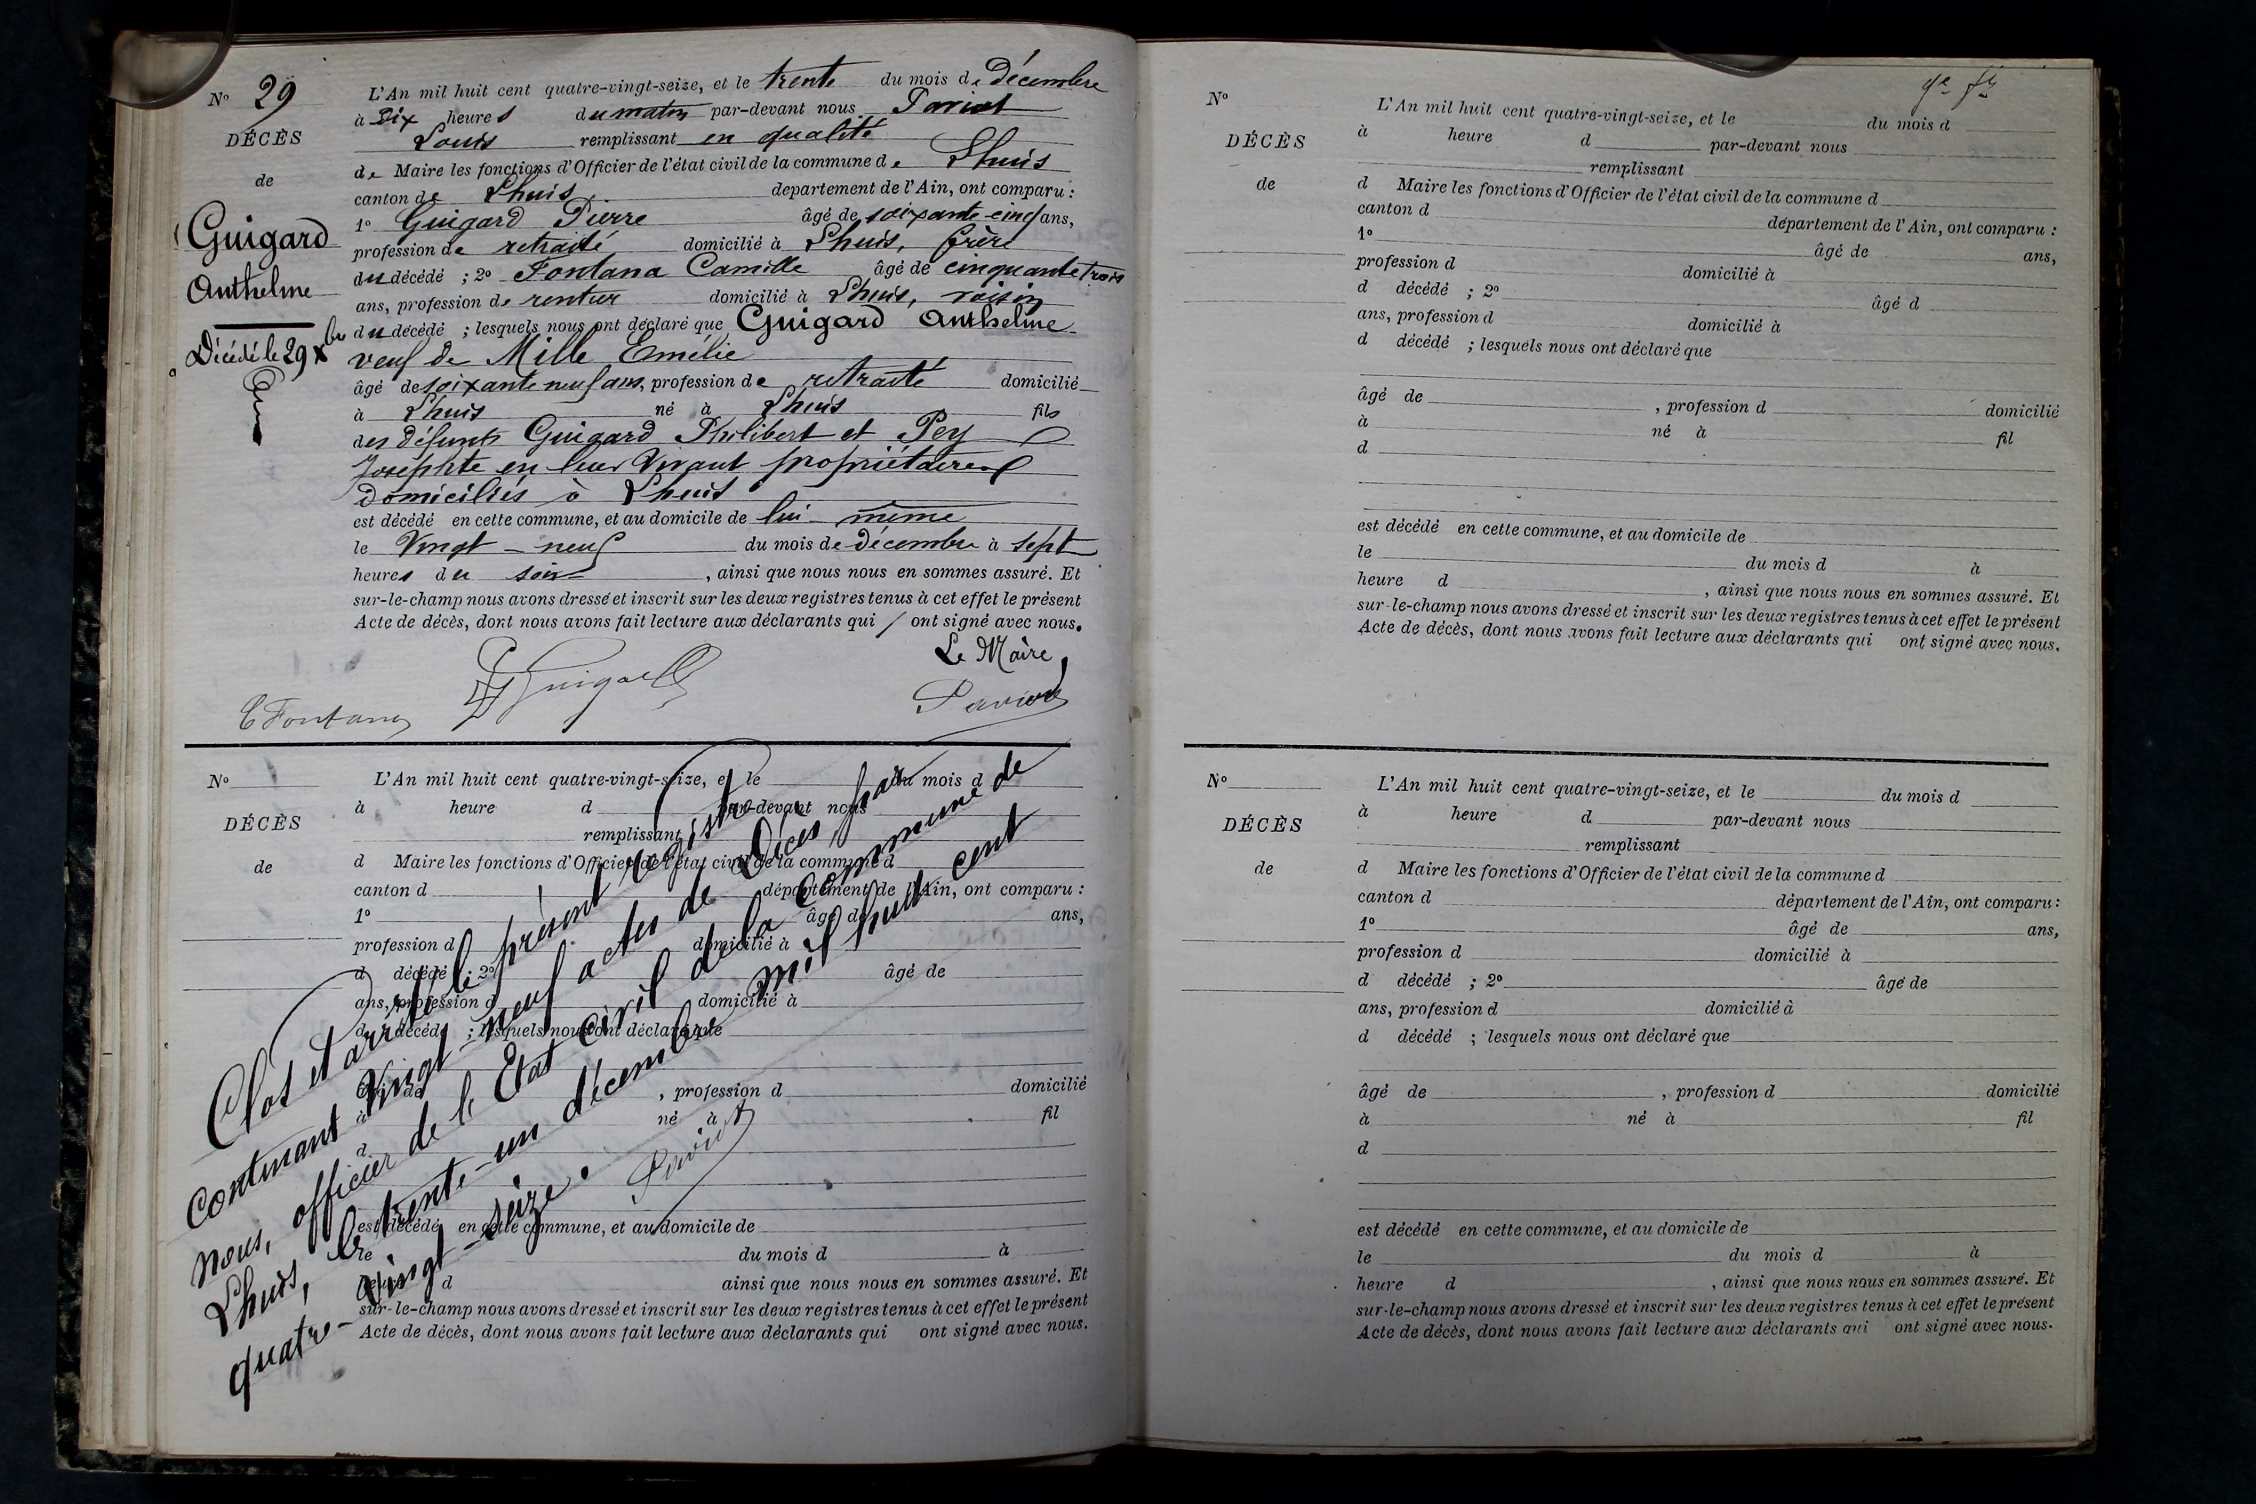 Nº 29
DÉCÈS
de
Guigard
Anthelme
Décédé le 29 Xbre
L'An mil huit cent quatre-vingt-seize, et le trente du mois de Décembre
à Dix heures du matin par-devant nous Paviot
Louis remplissant en qualité
de Maire les fonctions d'Officier de l'état civil de la commune de Lhuis
canton de Lhuis département de l'Ain, ont comparu :
1º Guigard Pierre âgé de soixante-cinq ans,
profession de retraité domicilié à Lhuis, frère
du décédé ; 2º Fontana Camille âgé de cinquante trois
ans, profession de rentier domicilié à Lhuis, voisin
du décédé ; lesquels nous ont déclaré que Guigard Anthelme
veuf de Mille Emélie
âgé de soixante neuf ans, profession de retraité domicilié
à Lhuis né à Lhuis fils
des défunts Guigard Philibert et Pey
Josephte en leur vivant propriétaires
domiciliés à Lhuis
est décédé en cette commune, et au domicile de lui-même
le Vingt-neuf du mois de décembre à sept
heures du soir, ainsi que nous nous en sommes assuré. Et
sur-le-champ nous avons dressé et inscrit sur les deux registres tenus à cet effet le présent
Acte de décès, dont nous avons fait lecture aux déclarants qui / ont signé avec nous.
Le Maire
C Fontana Guigard Paviot
Nº
DÉCÈS
de
L'An mil huit cent quatre-vingt-seize, et le du mois d
à heure d par-devant nous
remplissant
d Maire les fonctions d'Officier de l'état civil de la commune d
canton d département de l'Ain, ont comparu :
1º âgé de ans,
profession d domicilié à
d décédé ; 2º âgé de
ans, profession d domicilié à
d décédé ; lesquels nous ont déclaré que
âgé de , profession d domicilié
à né à fil
d
est décédé en cette commune, et au domicile de
le du mois d à
heure d ainsi que nous nous en sommes assuré. Et
sur-le-champ nous avons dressé et inscrit sur les deux registres tenus à cet effet le présent
Acte de décès, dont nous avons fait lecture aux déclarants qui ont signé avec nous.
Clos et arrêté le présent registre
contenant vingt-neuf actes de Décès, par
nous, officier de l'Etat civil de la commune de
Lhuis, le trente-un décembre mil huit cent
quatre-vingt-seize.
Paviot
Nº
DÉCÈS
de
L'An mil huit cent quatre-vingt-seize, et le du mois d
à heure d par-devant nous
remplissant
d Maire les fonctions d'Officier de l'état civil de la commune d
canton d département de l'Ain, ont comparu :
1º âgé de ans,
profession d domicilié à
d décédé ; 2º âgé d
ans, profession d domicilié à
d décédé ; lesquels nous ont déclaré que
âgé de , profession d domicilié
à né à fil
d
est décédé en cette commune, et au domicile de
le du mois d à
heure d , ainsi que nous nous en sommes assuré. Et
sur-le-champ nous avons dressé et inscrit sur les deux registres tenus à cet effet le présent
Acte de décès, dont nous avons fait lecture aux déclarants qui ont signé avec nous.
Nº
DÉCÈS
de
L'An mil huit cent quatre-vingt-seize, et le du mois d
à heure d par-devant nous
remplissant
d Maire les fonctions d'Officier de l'état civil de la commune d
canton d département de l'Ain, ont comparu :
1º âgé de ans,
profession d domicilié à
d décédé ; 2º âgé de
ans, profession d domicilié à
d décédé ; lesquels nous ont déclaré que
âgé de , profession d domicilié
à né à fil
d
est décédé en cette commune, et au domicile de
le du mois d à
heure d , ainsi que nous nous en sommes assuré. Et
sur-le-champ nous avons dressé et inscrit sur les deux registres tenus à cet effet le présent
Acte de décès, dont nous avons fait lecture aux déclarants qui ont signé avec nous.